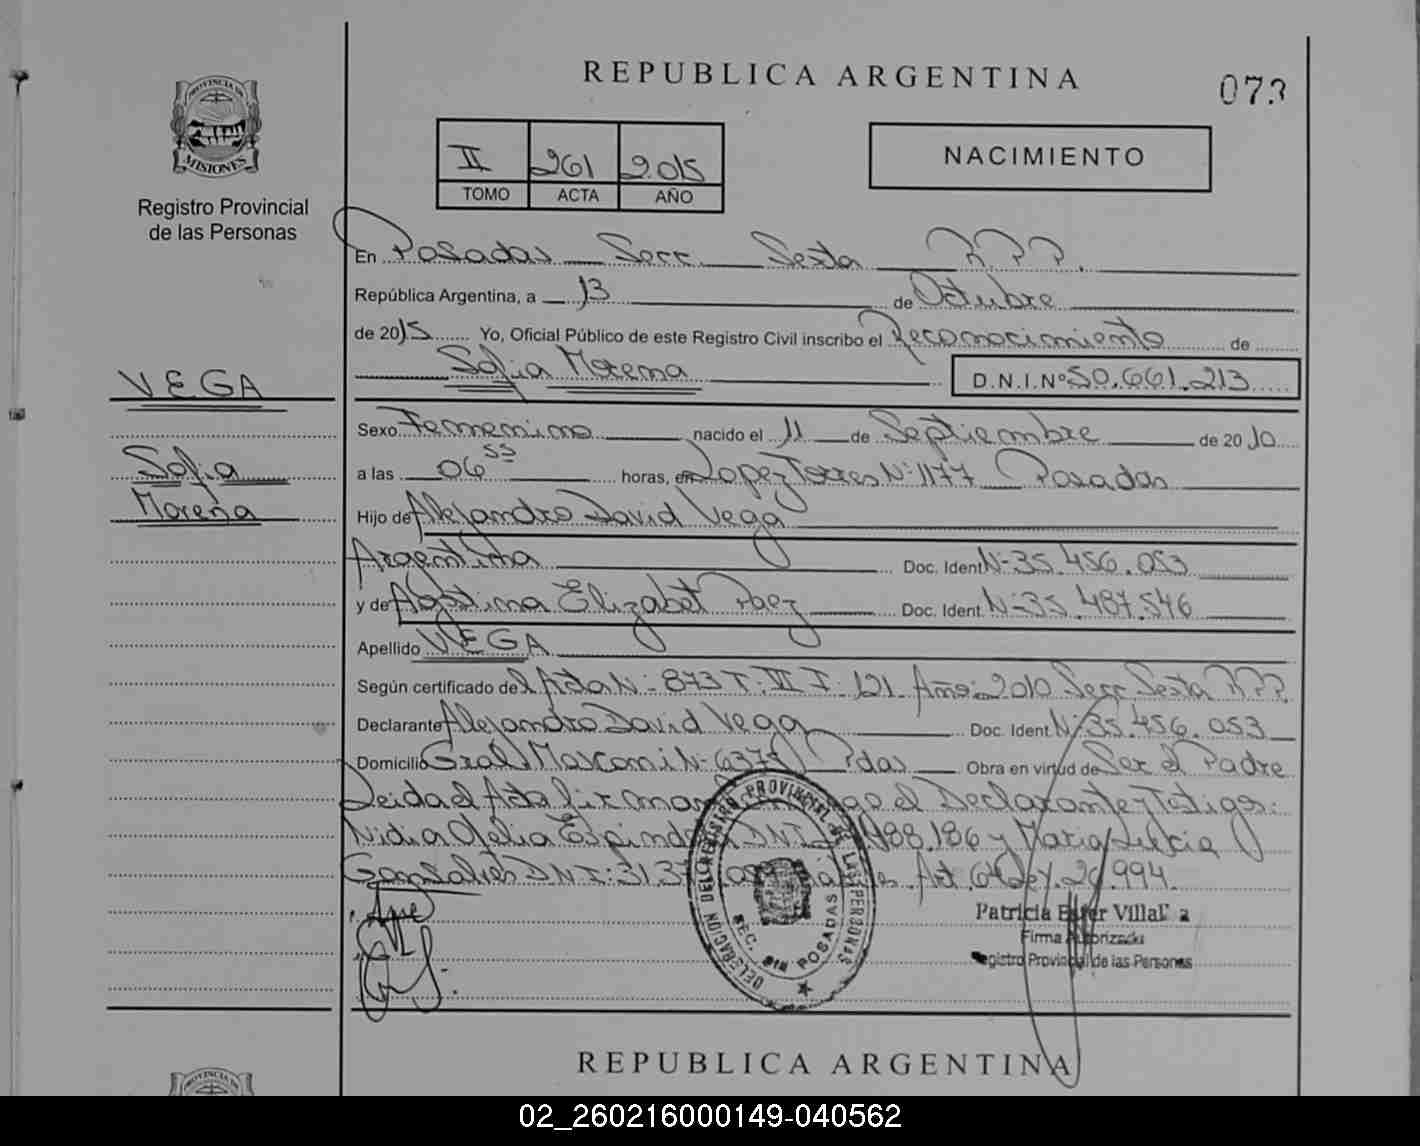 REPUBLICA ARGENTINA
073
PROVINCIA DE
MISIONES
Registro Provincial
de las Personas
II 261 2015
TOMO ACTA AÑO
NACIMIENTO
En Posadas Secc. Sexta R.P.P.
República Argentina, a 13 de Octubre
de 2015 Yo, Oficial Público de este Registro Civil inscribo el Reconocimiento de
Sofia Morena D.N.I.Nº 50.661.213
VEGA
Sexo Femenino nacido el 11 de Septiembre de 2010
Sofia
a las 06 55 horas, en Lopez Torres Nº 1177 Posadas
Morena
Hijo de Alejandro David Vega
Argentina Doc. Ident. Nº 35.456.053
y de Agostina Elizabet Paez Doc. Ident. Nº 35.487.546
Apellido VEGA
Según certificado del Acta Nº 873 T: III F: 121 Año: 2010 Secc Sexta R.P.P.
Declarante Alejandro David Vega Doc. Ident. Nº 35.456.053
Domicilio Gral Mosconi Nº Pdas Obra en virtud de Ser el Padre
Leida el Acta firman el Declarante y Testigos:
Nidia Ofelia Espindola DNI 88.186 y Maria
DNI: 31.3 Art. 64 Ley 26.994.
DELEGACION DEL REGISTRO PROVINCIAL DE LAS PERSONAS
SEC. 6ta POSADAS
Patricia Ester
Firma Autorizada
Registro Provincial de las Personas
REPUBLICA ARGENTINA
PROVINCIA DE
02_260216000149-040562